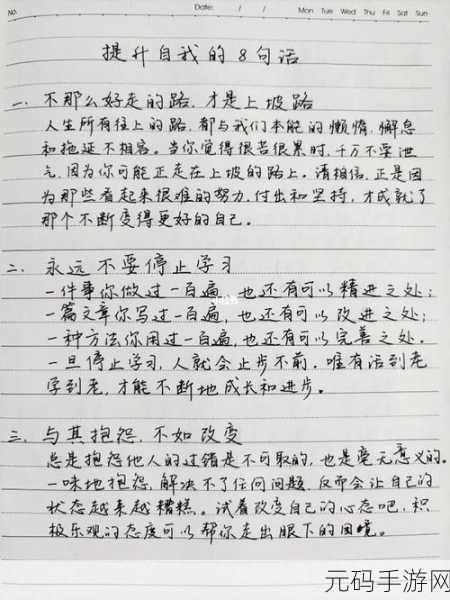 No.
Date: / /
Mon Tue Wed Thu Fri Sat Sun
提升自我的8句话
一、不那么好走的路,才是上坡路
人生所有往上的路,都与我们本能的懒惰、懈怠
和拖延不相容。当你觉得很苦很累时,千万不要泄
气,因为你可能正走在上坡的路上。请相信,正是因
为那些看起来很难的努力、付出和坚持,才成就了
那个不断变得更好的自己。
二、永远不要停止学习
一件事你做过一百遍,也还有可以精进之处;
一篇文章你写过一百遍,也还有可以改进之处;
一种方法你用过一百遍,也还有可以完善之处。
一旦停止学习,人就会止步不前。唯有活到老
学到老,才能不断地成长和进步。
三、与其抱怨,不如改变
总是抱怨他人的过错是不可取的,也是毫无意义的。
一味地抱怨,解决不了任何问题,反而会让自己的
状态越来越糟糕。试着改变自己的心态吧,积
极乐观的态度可以帮你走出眼下的困境。
元码手游网